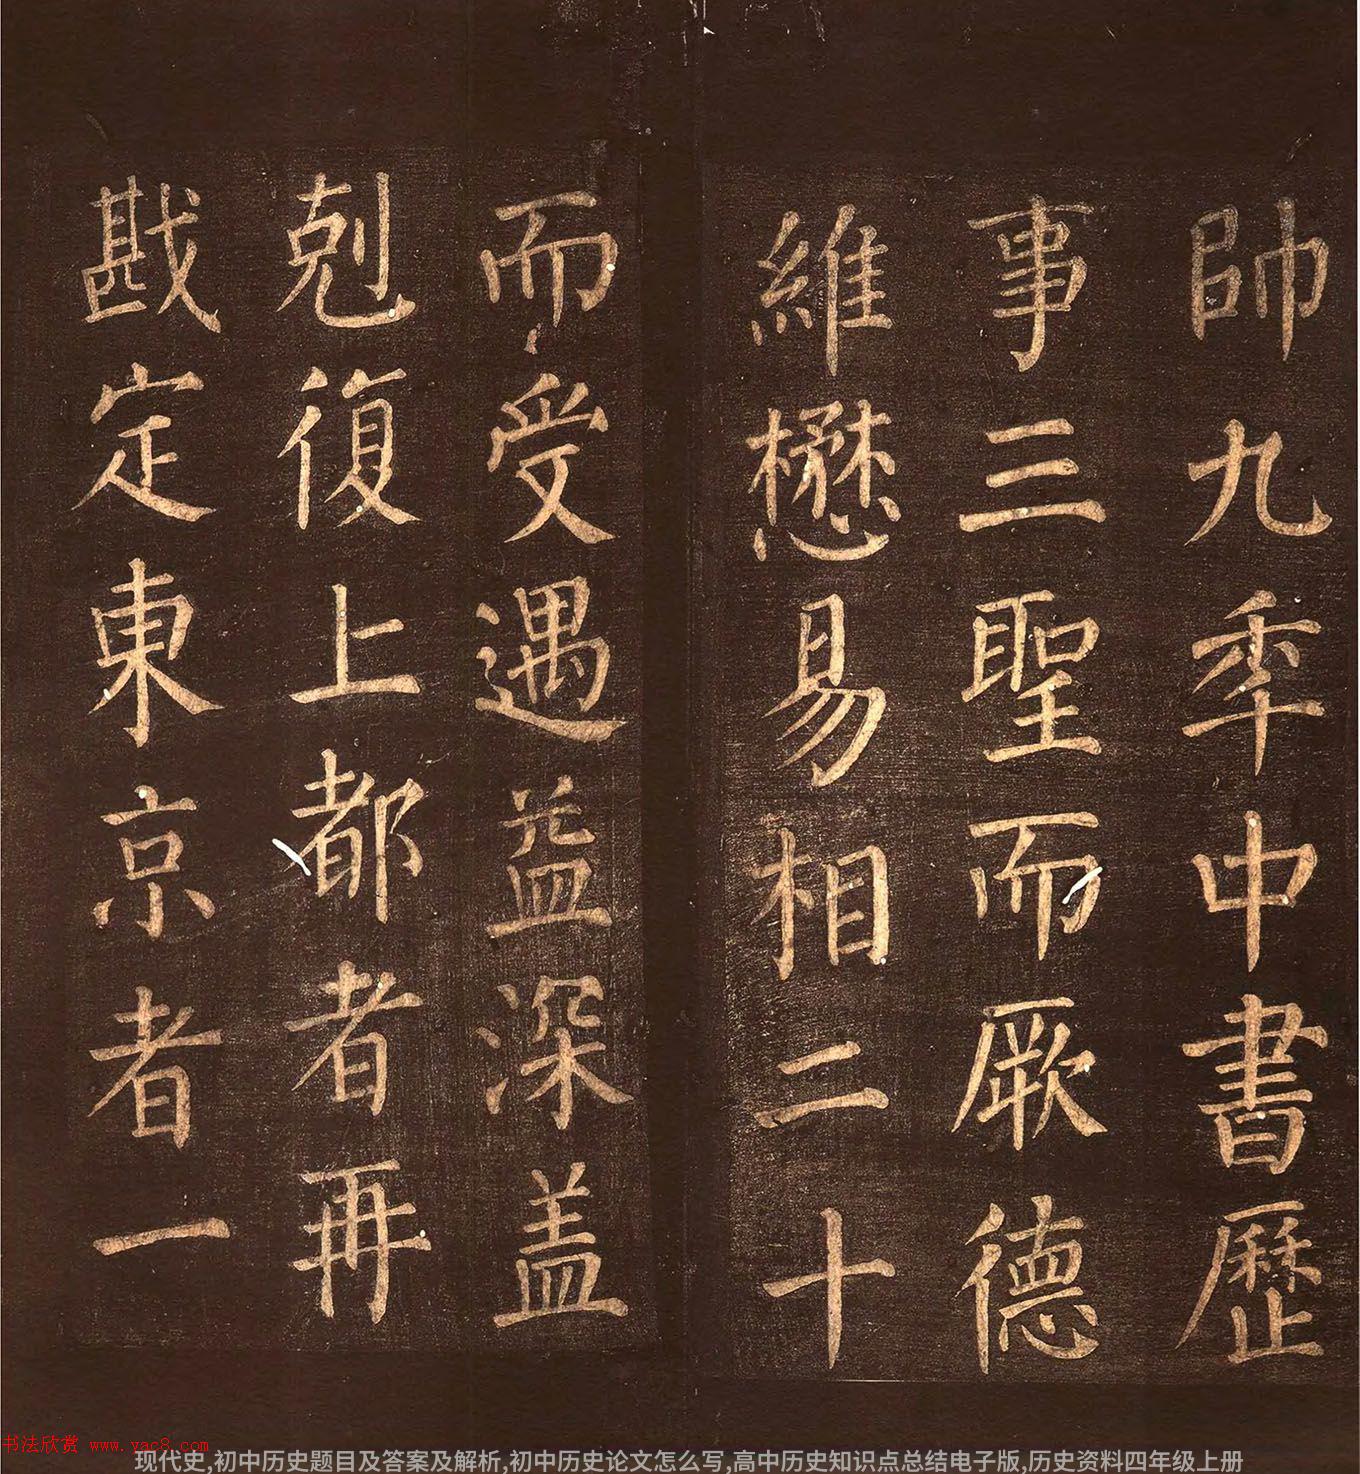 帥九秊中書歷
事三聖而厥德
維懋易相二十
而受遇益深盖
剋復上都者再
戡定東京者一
书法欣赏 www.yac8.com
现代史,初中历史题目及答案及解析,初中历史论文怎么写,高中历史知识点总结电子版,历史资料四年级上册